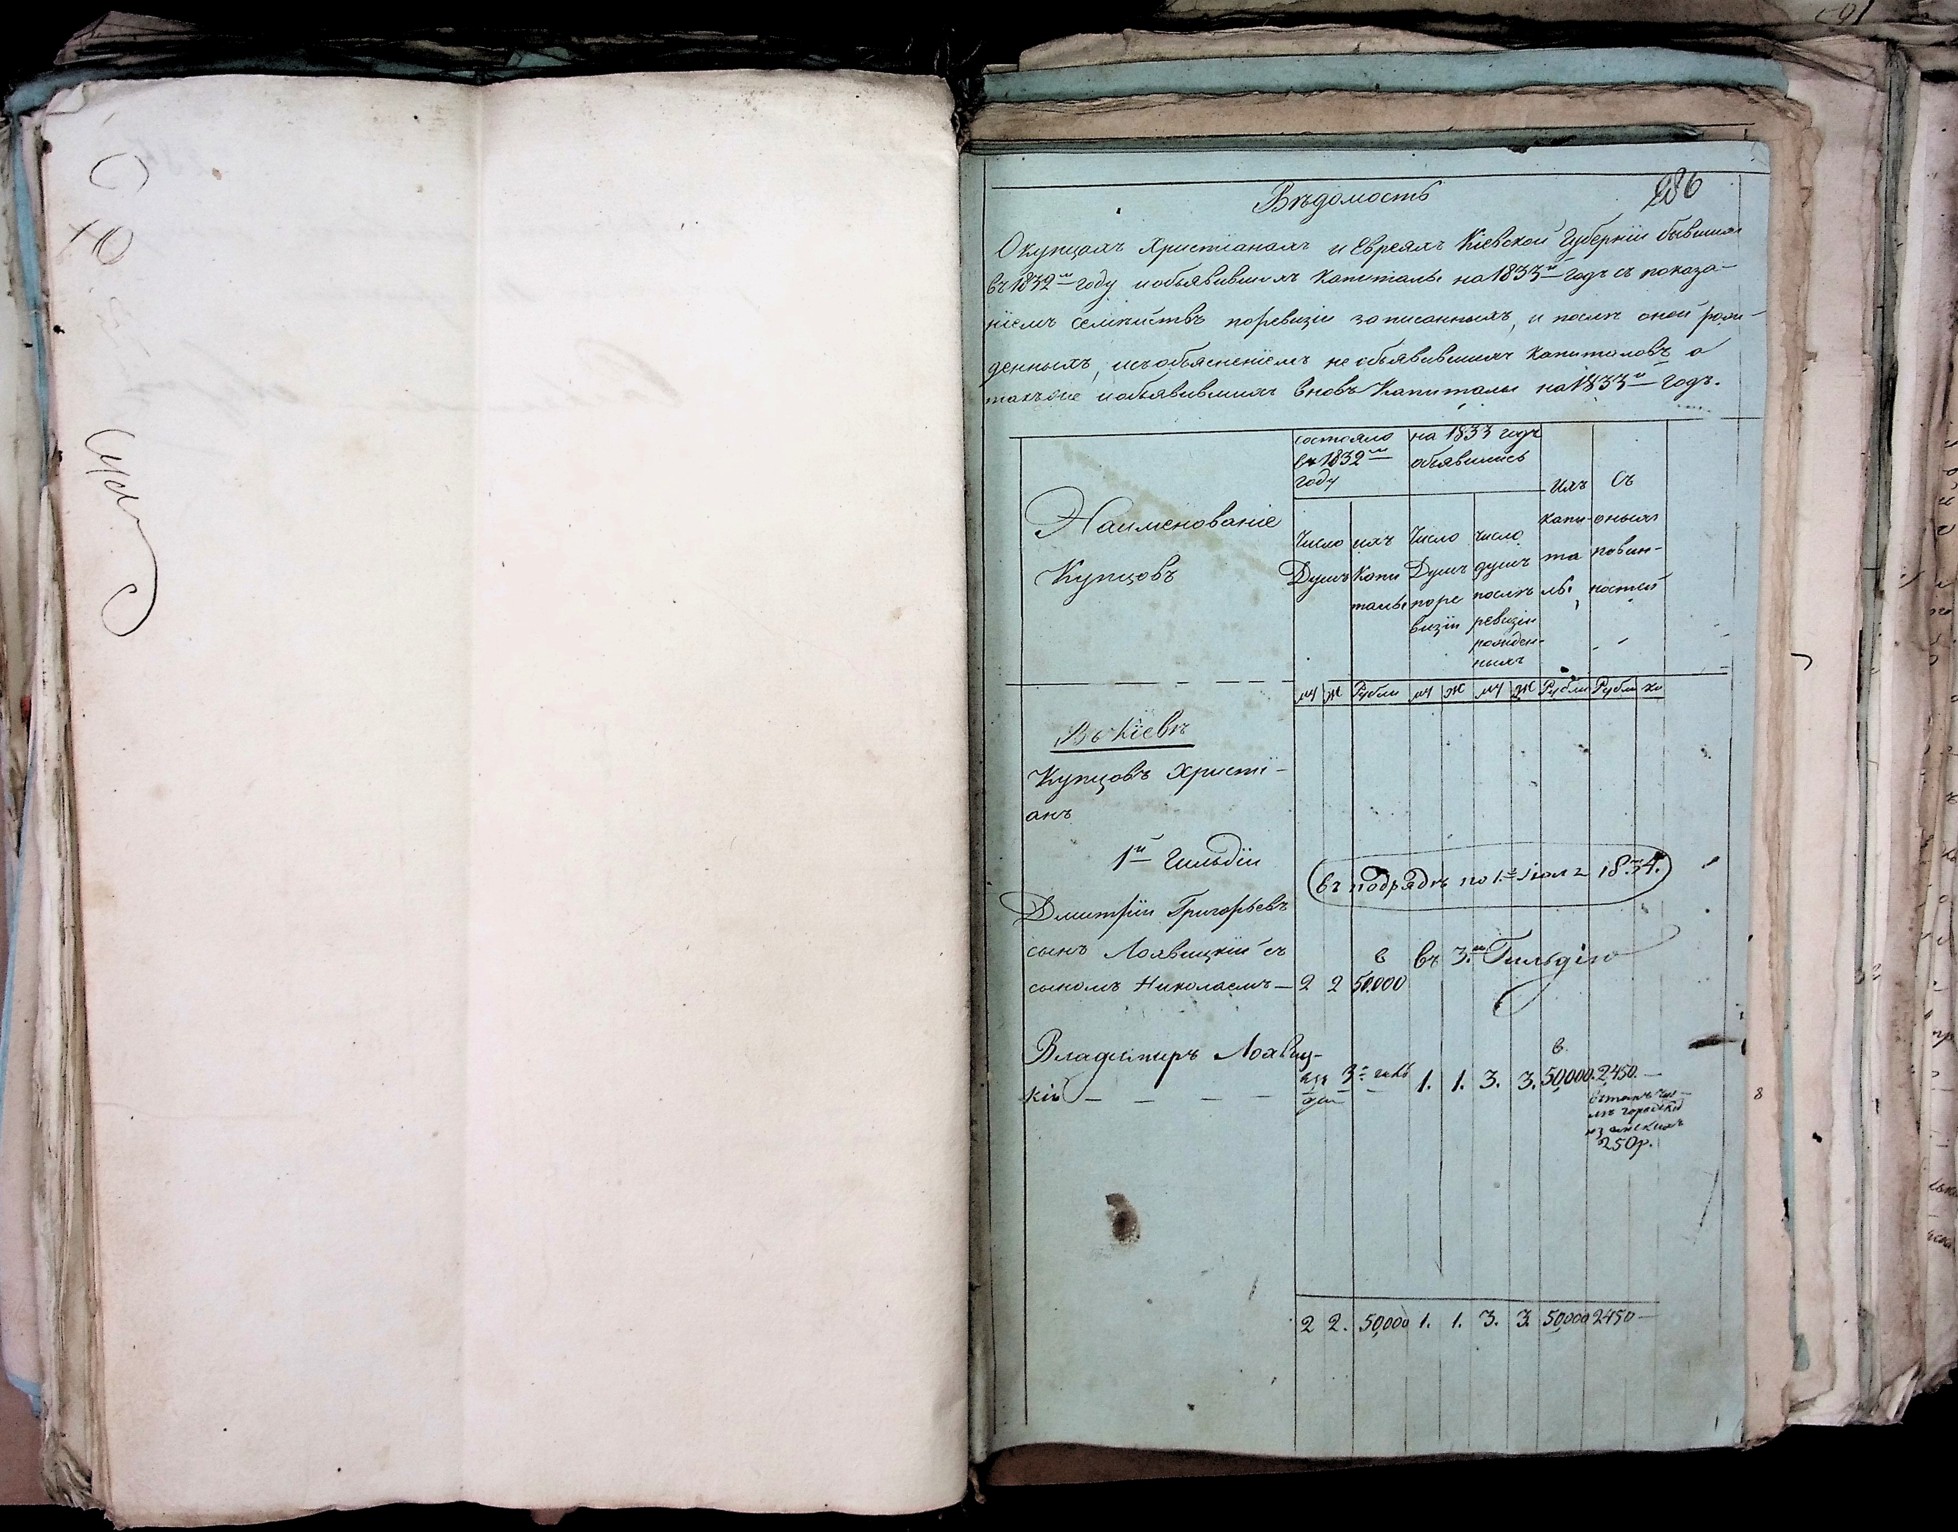 286
Вѣдомость
О купцахъ Христіанахъ и Евреяхъ Кіевской Губерніи бывшихъ
въ 1832м году и объявившихъ Капиталы на 1833й годъ съ показа-
ніемъ семействъ по ревизіи записанныхъ, и послѣ оной рож-
денныхъ, и съ объясненіемъ не объявившихъ Капиталовъ а
также и объявившихъ вновь Капиталы на 1833й годъ.
Наименованіе
Купцовъ
состояло
въ 1832м
году
на 1833 годъ
объявились
Число
Душъ
ихъ
Капи
талы
Число
Душъ
по ре
визіи
число
душъ
послѣ
ревизіи
рожден-
ныхъ
ихъ
капи-
та
лы
Съ
оныхъ
повин-
ностей
м ж Рубли м ж м ж Рубли Рубли ко
Въ Кіевѣ
Купцовъ Христі-
анъ
1й Гильдіи
въ подрядѣ по 1е Іюля 1834.
Дмитрій Григорьевъ
сынъ Лоявицкій съ
сыномъ Николаемъ — 2 2 50.000
в въ 3ю Гильдію
Владимиръ Лояви́ц-
кій — — — —
изъ 3й гиль
діи
1. 1. 3. 3. 50,000. 2450. —
в.
въ томъ чис-
лѣ городскихъ
250р.
2 2. 50,000 1. 1. 3. 3. 50,000 2450 —